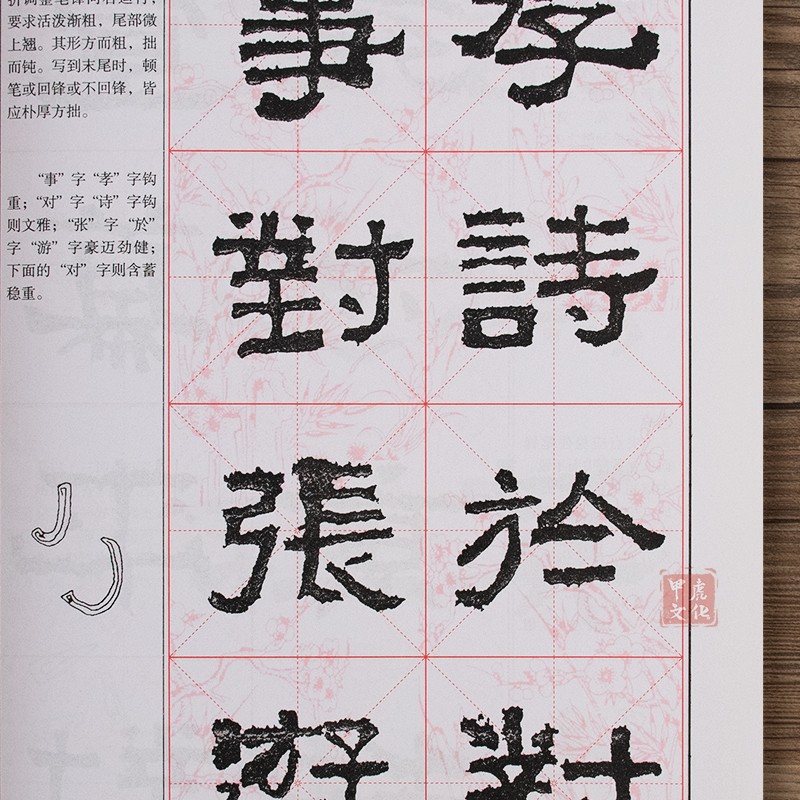 折调整笔锋向右运行,
要求活泼渐粗，尾部微
上翘。其形方而粗，拙
而钝。写到末尾时，顿
笔或回锋或不回锋，皆
应朴厚方拙。
“事”字“孝”字钩
重；“对”字“诗”字钩
则文雅；“张”字“於”
字“游”字豪迈劲健；
下面的“对”字则含蓄
稳重。
事 孝
對 詩
張 於
游 對
甲虎
文化